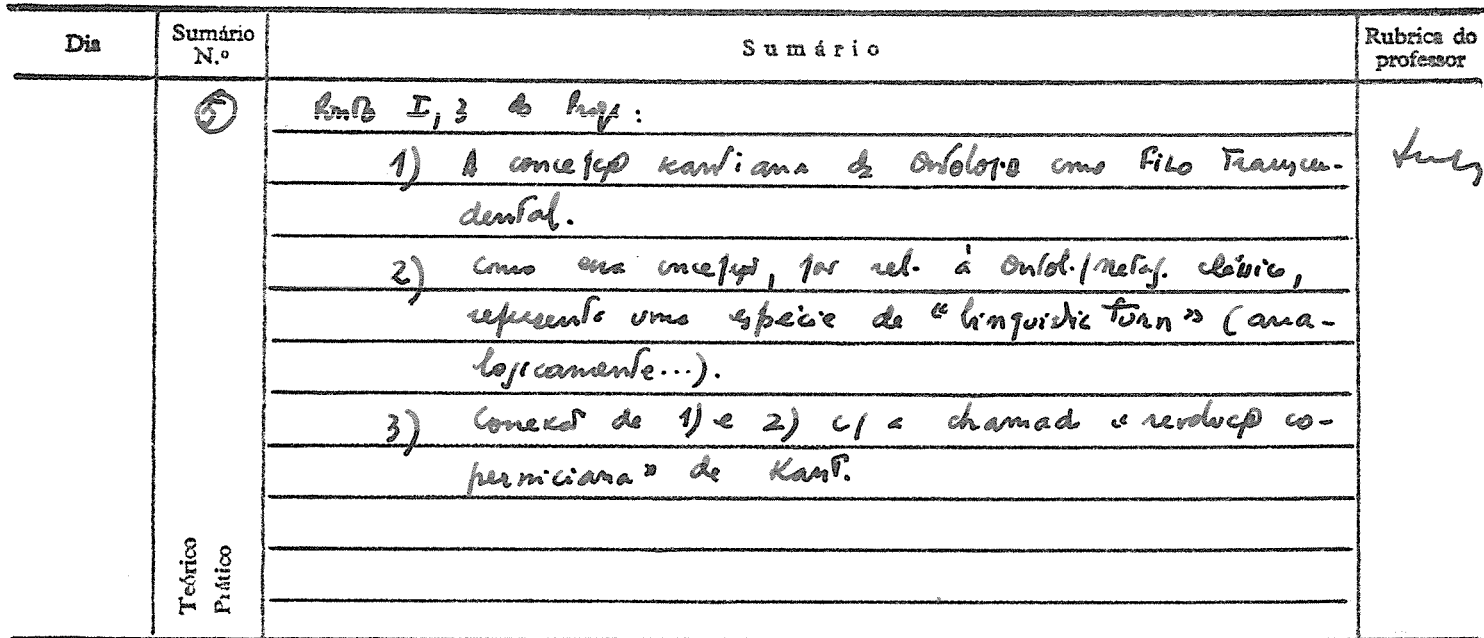 Dia Sumário N.º Sumário Rubrica do professor
5 Ponto I, 3 do Prog.:
1) A concepção kantiana de Ontologia como Filo Transcen-
dental.
2) Como essa concepção, por rel. à Ontol./Metaf. clássica,
representa uma espécie de "linguistic Turn" (ana-
logicamente...).
3) Conexão de 1) e 2) c/ a chamada "revolução co-
perniciana" de Kant.
Teórico
Prático